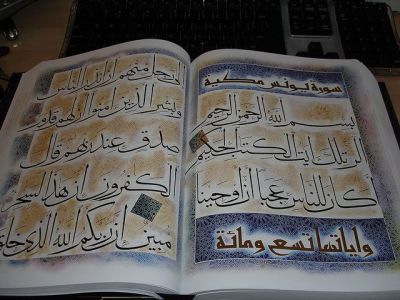 سورة يونس مكية
بسم الله الرحمن الرحيم
الر تلك ايت الكتب الحكيم
اكان للناس عجبا ان اوحينا
واياتها تسع ومائة
الى رجل منهم ان انذر الناس
وبشر الذين امنوا ان لهم قدم
صدق عند ربهم قال
الكفرون ان هذا لسحر
مبين ان ربكم الله الذى خلق